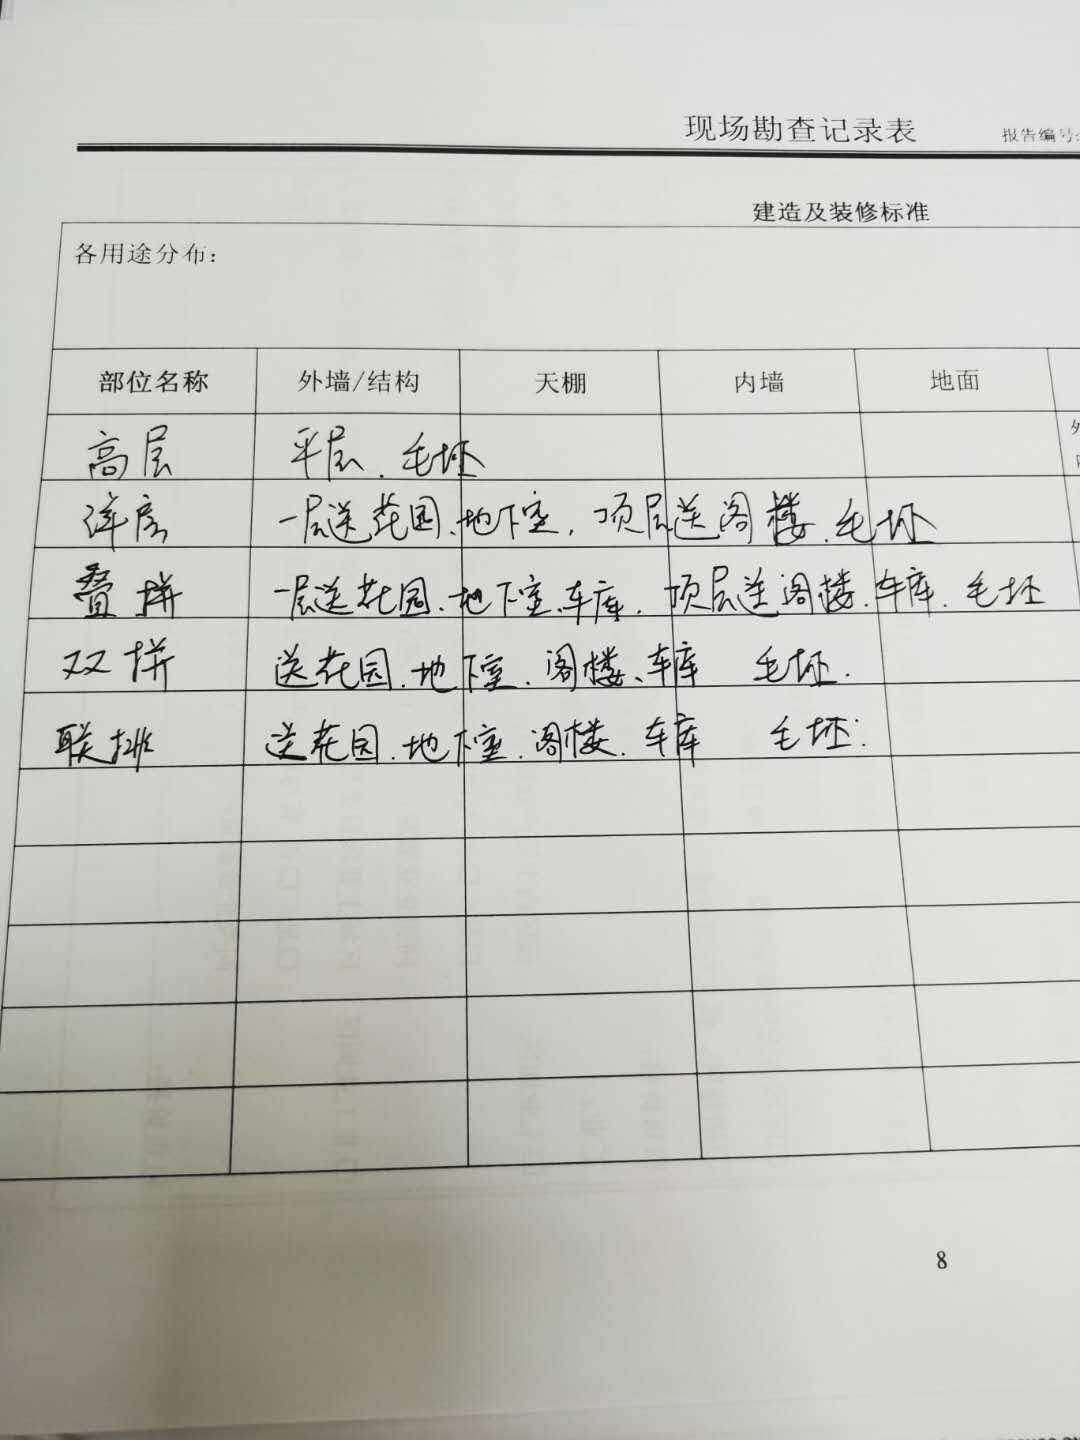 现场勘查记录表 报告编号:
建造及装修标准
各用途分布:
部位名称 外墙/结构 天棚 内墙 地面
高层 平层、毛坯
洋房 一层送花园、地下室,顶层送阁楼、毛坯
叠拼 一层送花园、地下室、车库、顶层送阁楼、车库、毛坯
双拼 送花园、地下室、阁楼、车库 毛坯.
联排 送花园、地下室、阁楼、车库 毛坯.
8